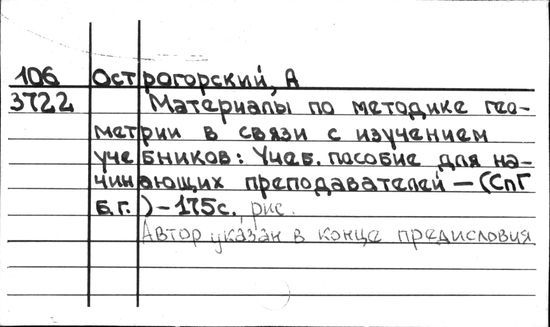 106 Острогорский, А
3722 Материалы по методике гео-
метрии в связи с изучением
учебников: Учеб. пособие для на-
чинающих преподавателей — (СпГ
б.г.) — 175с., рис.
Автор указан в конце предисловия